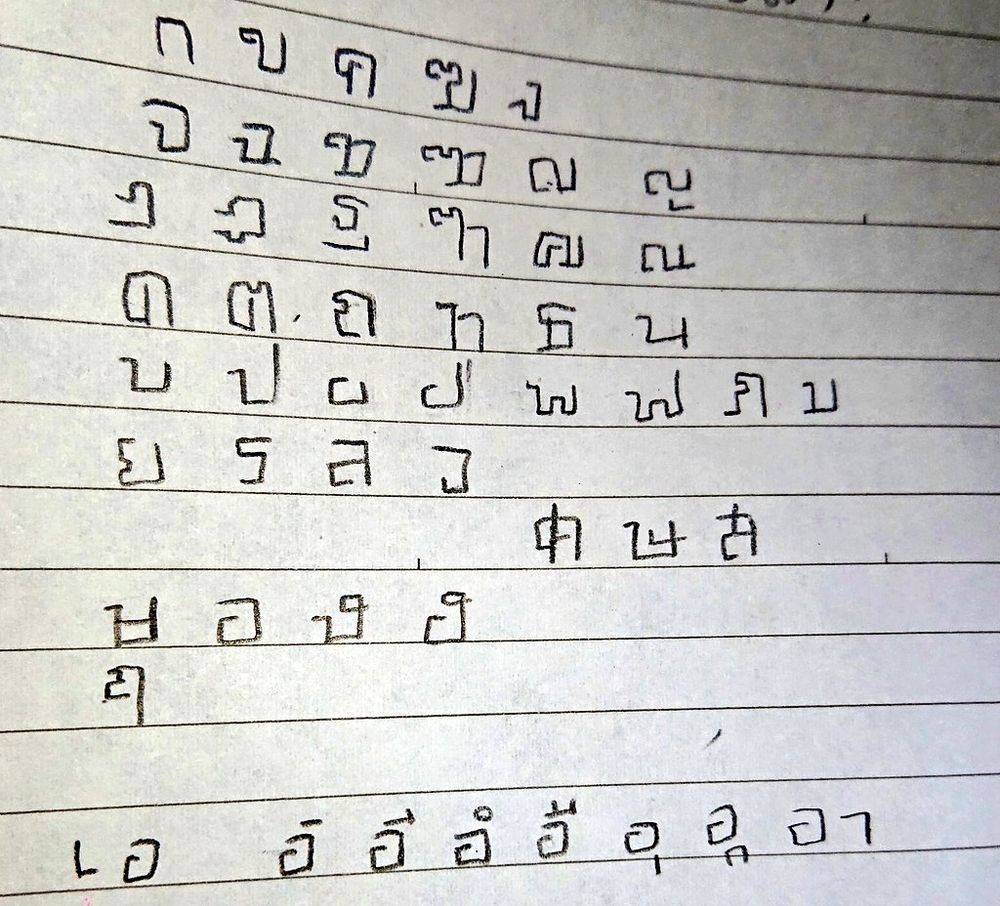 ก ข ค ฆ ง
จ ฉ ช ซ ฌ ญ
ฎ ฏ ฐ ฑ ฒ ณ
ด ต ถ ท ธ น
บ ป ผ ฝ พ ฟ ภ ม
ย ร ล ว
ศ ษ ส
ห อ ฬ ฮ
ฤ
เอ อิ อี อึ อื อุ อู อา